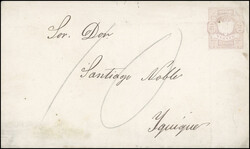 Sor. Don
10
Santiago Noble
Yquique